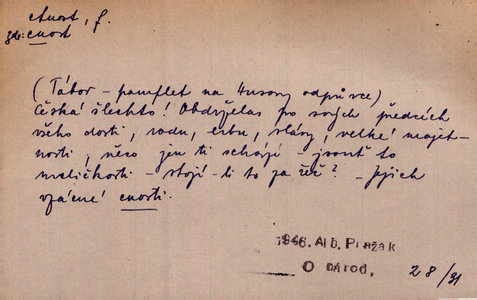 ctnost, f.
zdr: cnost
(Tábor – pamflet na Husovy odpůrce)
Česká šlechto! Obdrželas po svých předcích
všeho dosti, rodu, erbu, slávy, veliké majet-
nosti, něco jen ti schází – jsouť to
maličkosti – stojí-li to za řeč? – Jejich
vzácné cnosti.
1946. Alb. Pražak
O národ.
28/31